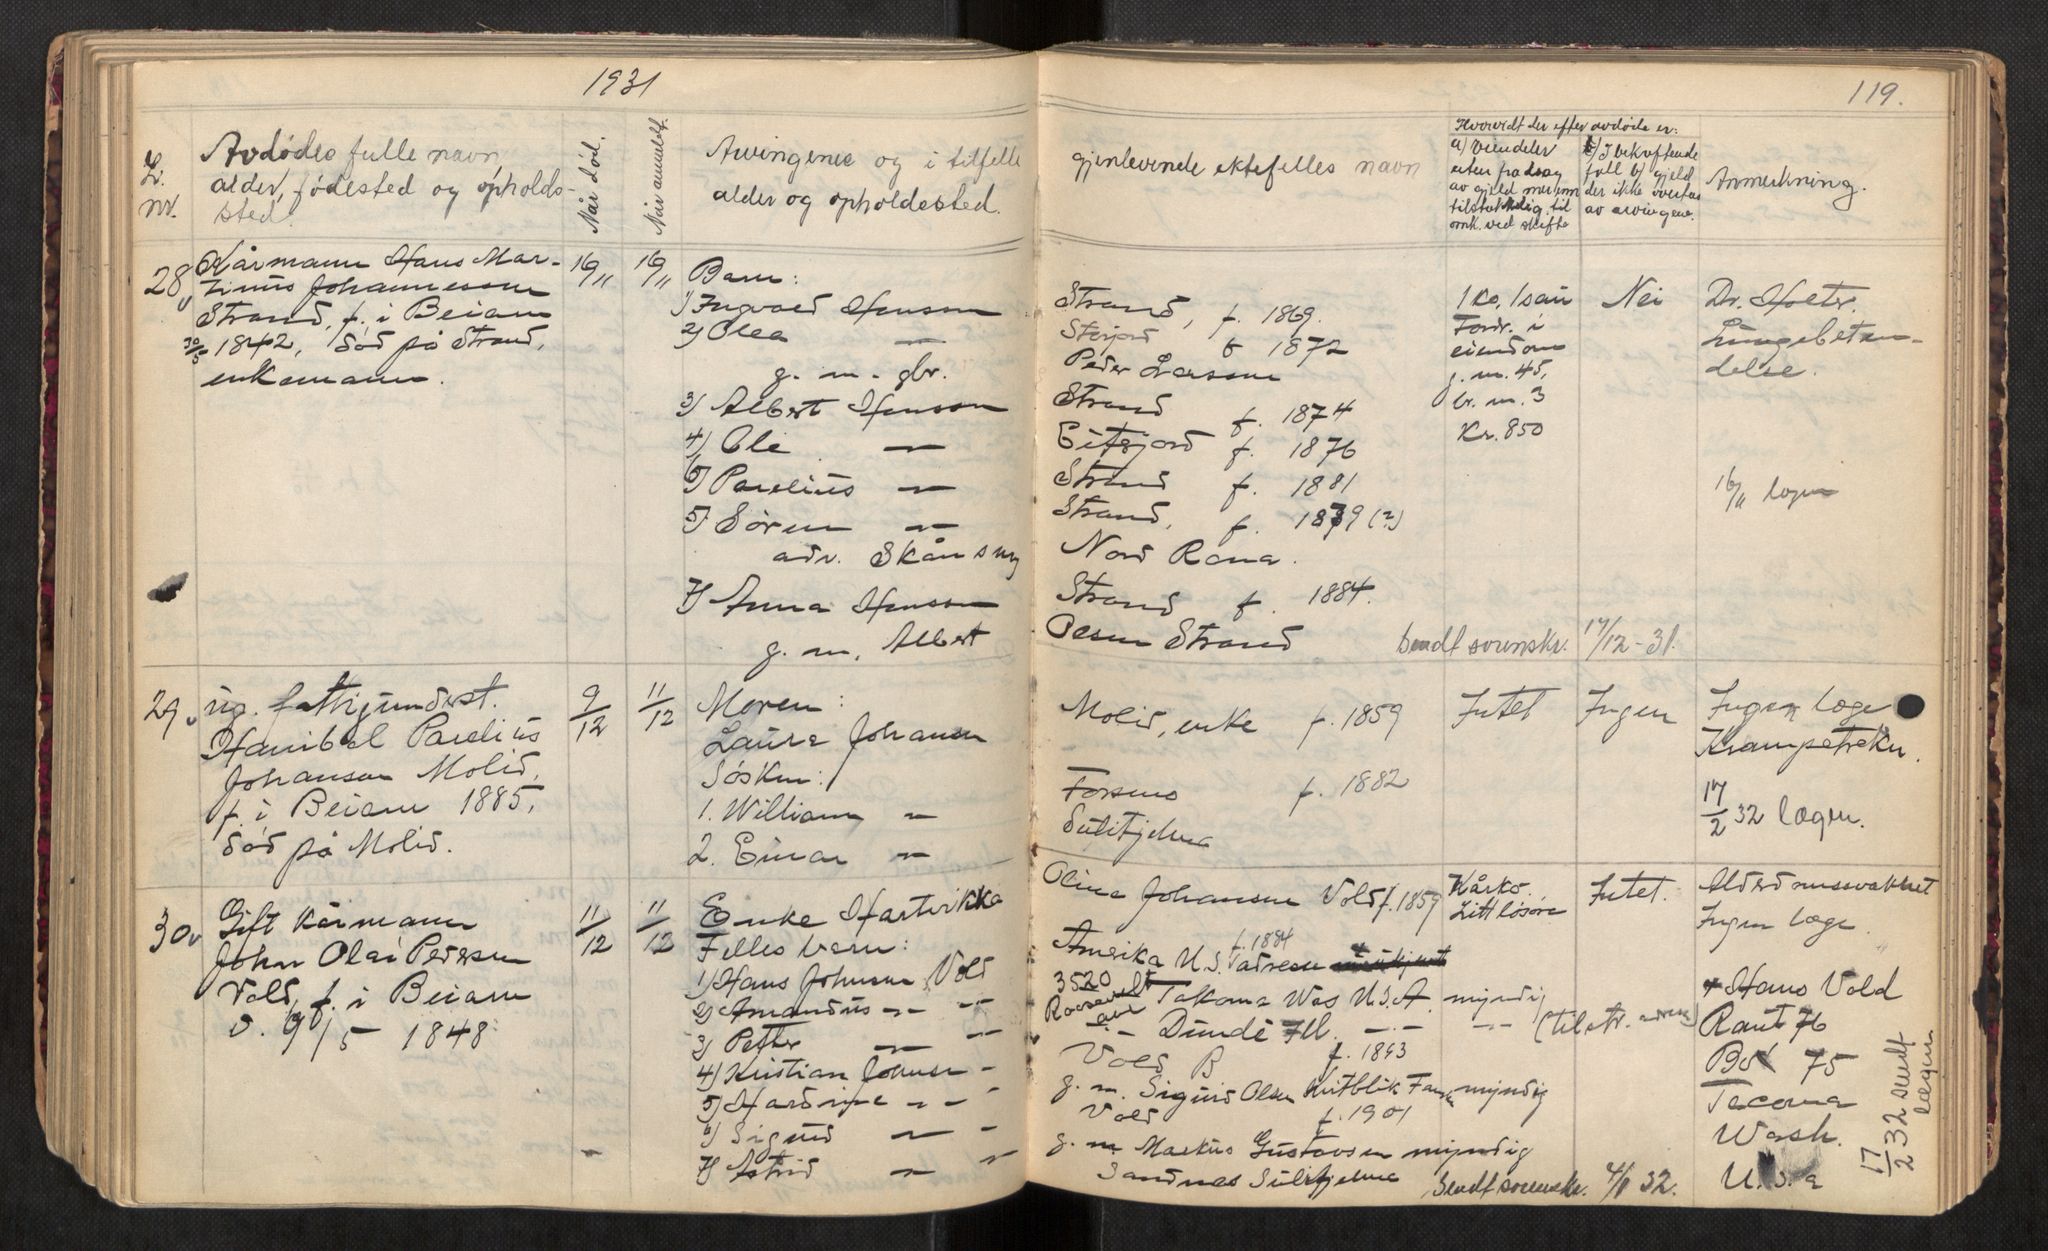 1931
Avdødes fulle navn,
alder, fødested og opholds-
sted.
Når død.
Når anmeldt.
Arvingene og i tilfelle
alder og opholdssted.
28
Kårmann Hans Mar-
tinius Johannessen
Strand, f. i Beiarn
30/5 1842, død på Strand,
enkemann.
16/11
16/11
Barn:
1) Ingvald Hansen
2) Olea —
g. m. gbr.
3) Albert Hansen
4) Ole —
6) Parelius —
5) Søren —
adr. Skånseng
7) Anna Hansen
g. m. Albert
29
ug. fattigunderst.
Hanibal Parelius
Johansen Molid,
f. i Beiarn 1885,
død på Molid.
9/12
11/12
Moren:
Laura Johansen
Søsken:
1. William —
2. Einar —
30
Gift kårmann
John Olai Pedersen
Vold, f. i Beiarn
d. 9/5 1848
11/12
11/12
Enke Hartvikka
Felles barn:
1) Hans Johnsen Vold
2) Amandus — —
3) Petter — —
4) Kristian Johnsen —
5) Hardine — —
6) Sigurd — —
7) Astrid — —
119.
gjenlevende ektefelles navn
Hvorvidt der efter avdøde er:
a) Eiendeler
efter fradrag
av gjeld mer enn
tilstrekkelig til
omk. ved skifte
b) I bekreftende
fall b) gjeld
der ikke overtas
av arvingene.
Anmerkning.
Strand, f. 1869.
Storjord f. 1872
Peder Larssen
Strand f. 1874
Eitfjord f. 1876
Strand f. 1881
Strand, f. 1879 (?)
Nord Rana.
Strand f. 1884.
Olsen Strand
1 ko, 1 sau
Fordr. i
eiendom
g. nr. 45,
br. nr. 3
Kr. 850
Nei
Dr. Holter.
Lungebeten-
delse.
16/11 legen
Sendt sorenskr. 17/12-31.
Molid, enke f. 1859
Forsmo f. 1882
Sulitjelma
Intet
Ingen
Ingen læge
Krampetrekn.
17/2 32 lægen.
Olina Johansen Vold f. 1859
Kårko.
Litt løsøre
Intet.
Alderdomssvakhet
Ingen læge.
f. 1884
Amerika U.S.
3520
Roosevelt
ave
Takoma Was U.S.A. myndig
— Dundē Ill. — —
Vold B f. 1893
g. m. Sigurd Olsen myndig
Vold f. 1901
g. m. Markus Gustavsen myndig
Sandnes Sulitjelma
Sendt sorenskr. 4/1 32.
Hans Vold
Raut 76
Box 75
Tecoma
Wash.
U.S.a
17/2 32 sendt
lægen